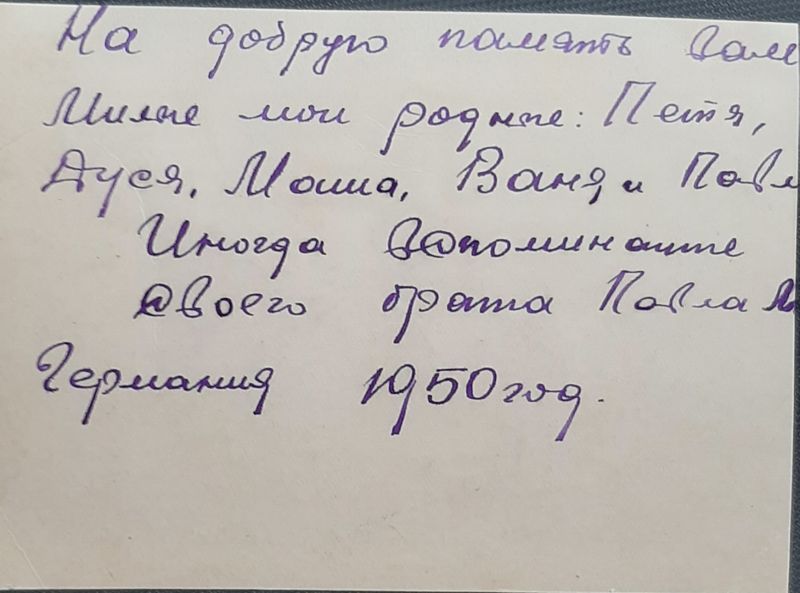 На добрую память Вам
Милые мои родные: Петя,
Дуся, Маша, Ваня, и Павл
Иногда вспоминайте
своего брата Павла
Германия 1950 год.